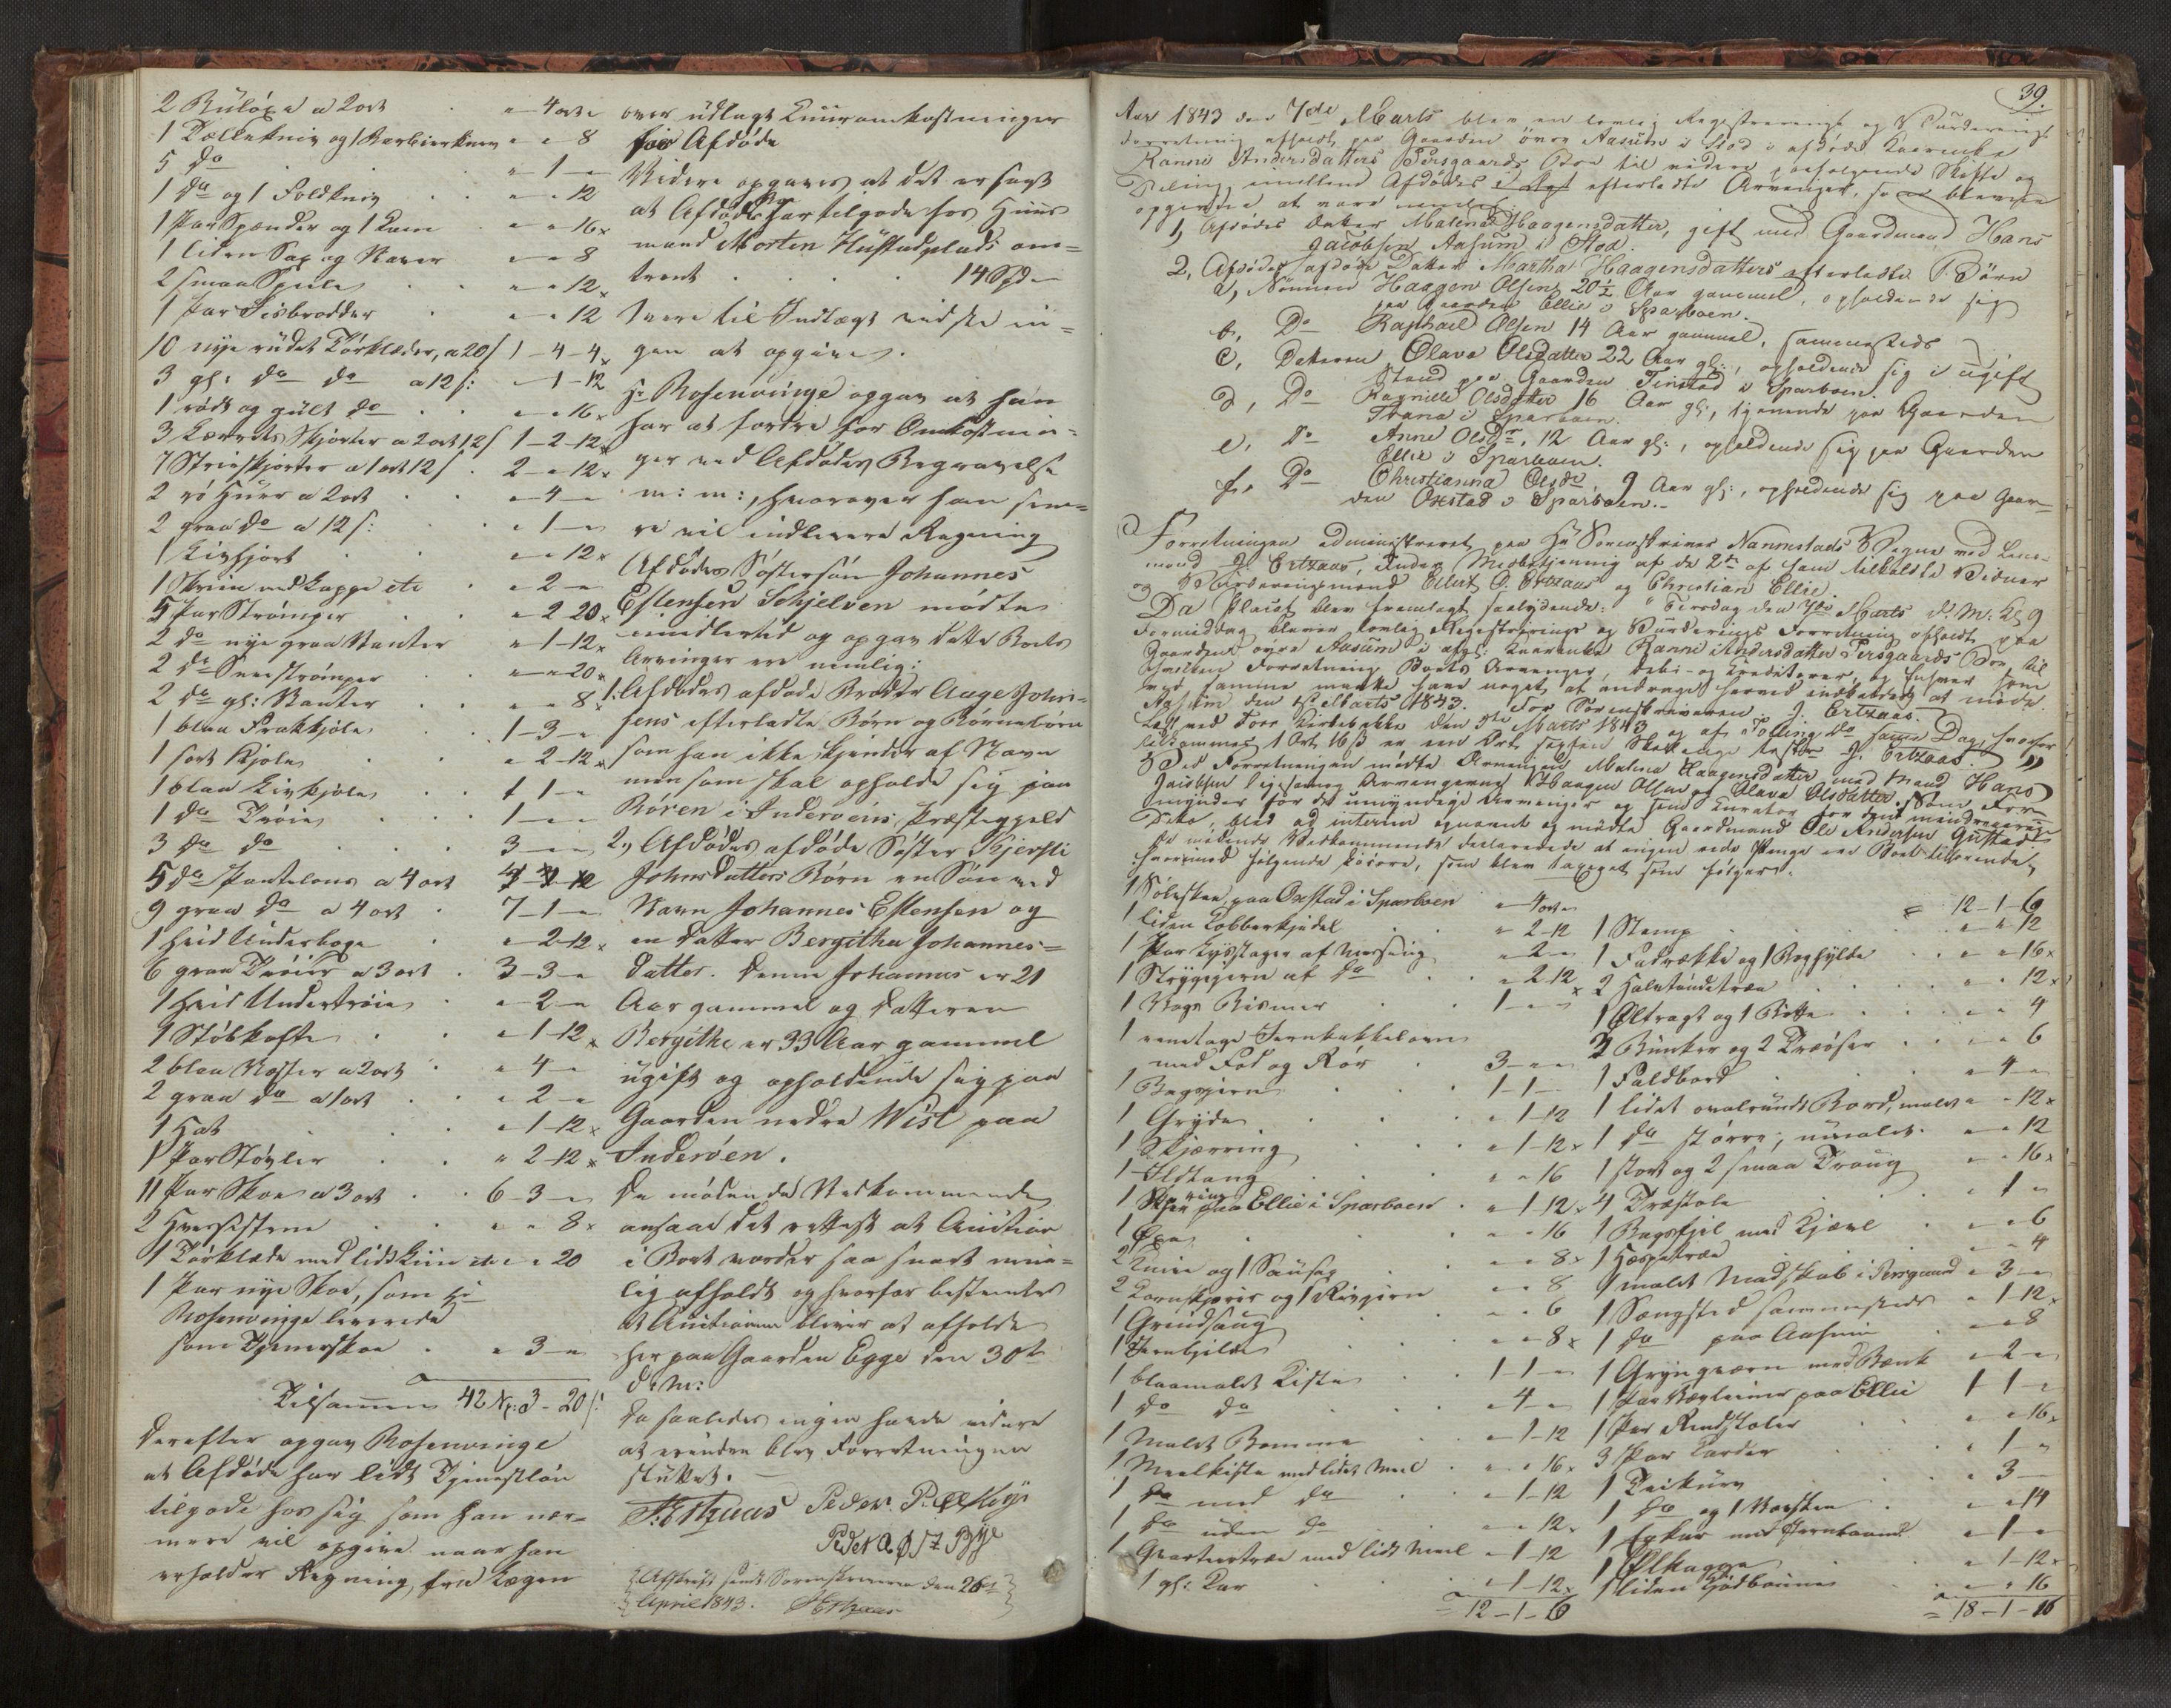 2 Buløxe a 2 ort " 4 ort "
1 Tællekniv og 1 Barbierkniv " " 8
5 do " 1 "
1 do og 1 Foldkniv " " 12
1 Par Spænder og 1 Kam " " 16
1 liden Sax og Naver " " 8
2 smaa Speile " " 12
1 Par Iisbrodder " " 12
10 nye rudet Tørklæder, a 20 s 1 - 4 - 4
3 gl: do do a 12 s: " 1 - 12
1 rødt og gult do " " 16
3 Lærrets Skjorter a 2 ort 12 s 1 - 2 - 12
7 Strieskjorter a 1 ort 12 s 2 " 12
2 Huer a 2 ort " 4 "
2 graa do a 12 s: " 1 "
1 Livskjort " " 12
1 Skrin med Kappe etc " 2 "
5 Par Strømper " 2 20
2 do nye graa Vanter " 1 - 12
2 do Sneestrømper " " 20
2 do gl: Vanter " " 8
1 blaa Frakkjole 1 - 3 "
1 sort Kjole " 2 - 12
1 blaa Livkjole 1 1 "
1 do Trøie 1 " "
3 do do 3 " "
5 do Pantelons a 4 ort
9 graa do a 4 ort 7 - 1 "
1 hvid Underboxe " 2 - 12
6 graa Trøier a 3 ort 3 - 3 "
1 hvid Undertrøie " 2 "
1 " 1 - 12
2 blaa Vester a 2 ort " 4 "
2 graa do a 1 ort " 2 "
1 Hat " 1 - 12
1 Par Støvler " 2 - 12
11 Par Skoe a 3 ort 6 - 3 "
2 " " 8
1 Tørklæde med lidt " " 20
1 Par nye Skoe, som Hr
Rosenvinge leverede
som Tjenerskoe " 3 "
Tilsammen 42 Sp: 3 - 20 s:
Derefter opgav Rosenvinge
at Afdøde har lidt Tjenestløn
tilgode hos sig som han nær-
mere vil opgive naar han
erholder Regning fra Lægen
over udlagt Kuuromkostninger
for Afdøde
Videre opgaves at det er sagt
at Afdøde har tilgode hos Huus
mand Morten Hustadplads om=
trent 14 Spd
mere til Indtægt vidste in=
gen at opgive.
Hr Rosenvinge opgav at han
har at fordre for Omkostnin=
ger ved Afdødes Begravelse
m: m:, hvorover han sene=
re vil indlevere Regning
Afdødes Søstersøn Johannes
Estensen Schjelven mødte
imidlertid og opgav dette Boets
Arvinger ere nemlig:
1. Afdødes afdøde Broder Aage John-
sens efterladte Børn og Børnebørn
som han ikke kjender af Navn
men som skal opholde sig paa
Røren i Inderøens Præstegjeld
2, Afdødes afdøde Søster Kjersti
Johnsdatters Børn en Søn ved
Navn Johannes Estensen og
en Datter Bergitha Johannes=
datter. Denne Johannes er 21
Aar gammel og Datteren
Bergithe er 33 Aar gammel
ugift og opholdende sig paa
Gaarden nedre Wist paa
Inderøen.
De mødende Vedkommende
ansaae det rettest at Auction
i Boet vorder saa snart mue=
lig afholdt og hvorfor bestemtes
at Auctionen bliver at afholde
her paa Gaarden Egge den 30te
d: M:
Da saaledes ingen havde videre
at erindre blev Forretningen
sluttet.
J. Ertzaas Peder P:
Peder
Afskrift sendt Sorenskriveren den 26de
April 1843. J Ertzaas
39.
Aar 1843 den 7de Marts blev en lovlig Registrerings og Vurderings
Forretning afholdt paa Gaarden øvre Aasum i Stod i afdøde Kaarenke
Ranni Andersdatters Persgaards Boe til videre paafølgende Skifte og
Deling imellem Afdødes efterladte Arvinger, som blev
opgivne at være nemlig:
1, Afdødes Datter Malena Haagensdatter, gift med Gaardmand Hans
Jacobsen Aasum i Stod.
2, Afdødes afdøde Datter Martha Haagensdatters efterladte Børn
a, Sønnen Haagen Olsen 20½ Aar gammel, opholdende sig
paa Gaarden Ellie i Sparboen.
b, Do Raphael Olsen 14 Aar gammel, sammesteds
c, Datteren Olava Olsdatter 22 Aar gl:, opholdende sig i ugift
Stand paa Gaarden Tinstad i Sparboen.
d, Do Ragnille Olsdatter 16 Aar gl:, tjenende paa Gaarden
Trana i Sparboen.
e, Do Anne Olsdr, 12 Aar gl:, opholdende sig paa Gaarden
Ellie i Sparboen.
f, Do Christianna Olsdr 9 Aar gl:, opholdende sig paa Gaar=
den Oxstad i Sparboen.
Forretningen administreret paa Hr Sorenskriver Nannestads Vegne ved Lens-
mand J. Ertzaas, under Medbetjening af de 2de af ham tilkaldte Vidner
og Vurderingsmænd Ellert O. Ertzaas og Christian Ellie.
Da Placat blev fremlagt saalydende: "Tirsdag den 7de Marts d. M: Kl 9
Formiddag bliver lovlig Registrerings og Vurderings Forretning afholdt paa
Gaarden øvre Aasum i afg: Kaarenke Ranni Andersdatter Persgaards Boe, til
hvilken Forretning Boets Arvinger, Debi- og Creditorer, og Enhver som
ved samme maatte have noget at andrage herved indkaldes at møde.
Aasum den 1te Marts 1843. For Sorenskriveren J. Ertzaas.
Læst ved Foer Kirkebakke den 5te Marts 1843 og af Følling do samme Dag, hvorfor
tilkommer 1 Ort 16 s er een Ort sexten Skilling J. Ertzaas."
Ved Forretningen mødte Arvingen Malena Haagensdatter med Mand Hans
Jacobsen ligesaa Arvingerne Haagen Olsen og Olava Olsdatter. Som For-
mynder for de umyndige Arvinger og som Curator for den mindreaarige
Sete, blev ad interim opnævnt og mødte Gaardmand Ole Andersen Gustad.
De mødende Vedkommende declarerede at ingen rede Penge var Boet tilhørende,
hvorimod følgende Løsøre, som blev taxeret som følger:
1 Sølvskee, paa Oxstad i Sparboen " 4 ort "
1 liden Kobberkjedel " 2 - 12
1 Par Lysestager af Messing " 2 "
1 Strygejern af do " 2 - 12
1 Vægt Bismer 1 " "
1 eenetages Jernkakkelovn
med Fod og Rør 3 " "
1 Bagejern 1 - 1 "
1 Gryde " 1 - 12
1 Skjærring " 1 - 12
1 Ildtang " " 16
1 paa Ellie i Sparboen " 1 12
1 Øxe " " 16
2 Knive og 1 Sausax " " 8
2 Kornskjærer og 1 Rivejern " " 8
1 Grindsaug " " 6
1 " " 8
1 blaamalet Kiste 1 - 1 "
1 do do " 4 "
1 Malet Bomme " 1 - 12
1 Meelkiste med lidet Meel " " 16
1 do med do " 1 - 12
1 do uden do " " 12
1 Qvartertræ med lidt Meel " 1 - 12
1 gl: Kar " 1 - 12
= 12 - 1 - 6
12 - 1 - 6
1 Stamp " " 12
1 Fadrække og 1 Boghylde " " 16
2 Halvtøndetræe " " 12
1 Øltragt og 1 Bøtte " " 4
2 Bunker og 2 " " 6
1 Foldbord " 4 "
1 lidet ovalrundt Bord, malet " " 12
1 do større, umalet " " 12
1 stort og 2 smaa Traug " " 16
4 Træstole " 1 "
1 Bagefjel med Kjævl " " 6
1 Haspetræe " " 4
1 malet Madskab i Persgaard " 3 "
1 Sængsted sammesteds " 1 - 12
1 do paa Aasum " " 8
1 Grynqværn med Bænk " 2 "
1 Par paa Ellie 1 1 "
1 Par " " 16
3 Par Karder " 1 "
1 " 3 "
1 do og 1 " " 14
1 med Jernbaand " 1 "
1 Ølkagge " 1 - 12
1 liden Kjødbomme " " 16
= 18 - 1 - 16